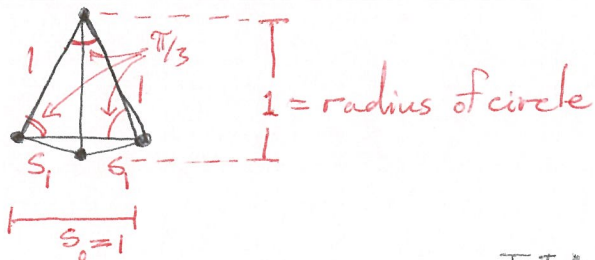 π/3
1
1
1 = radius of circle
S₁
S₁
S₀ = 1